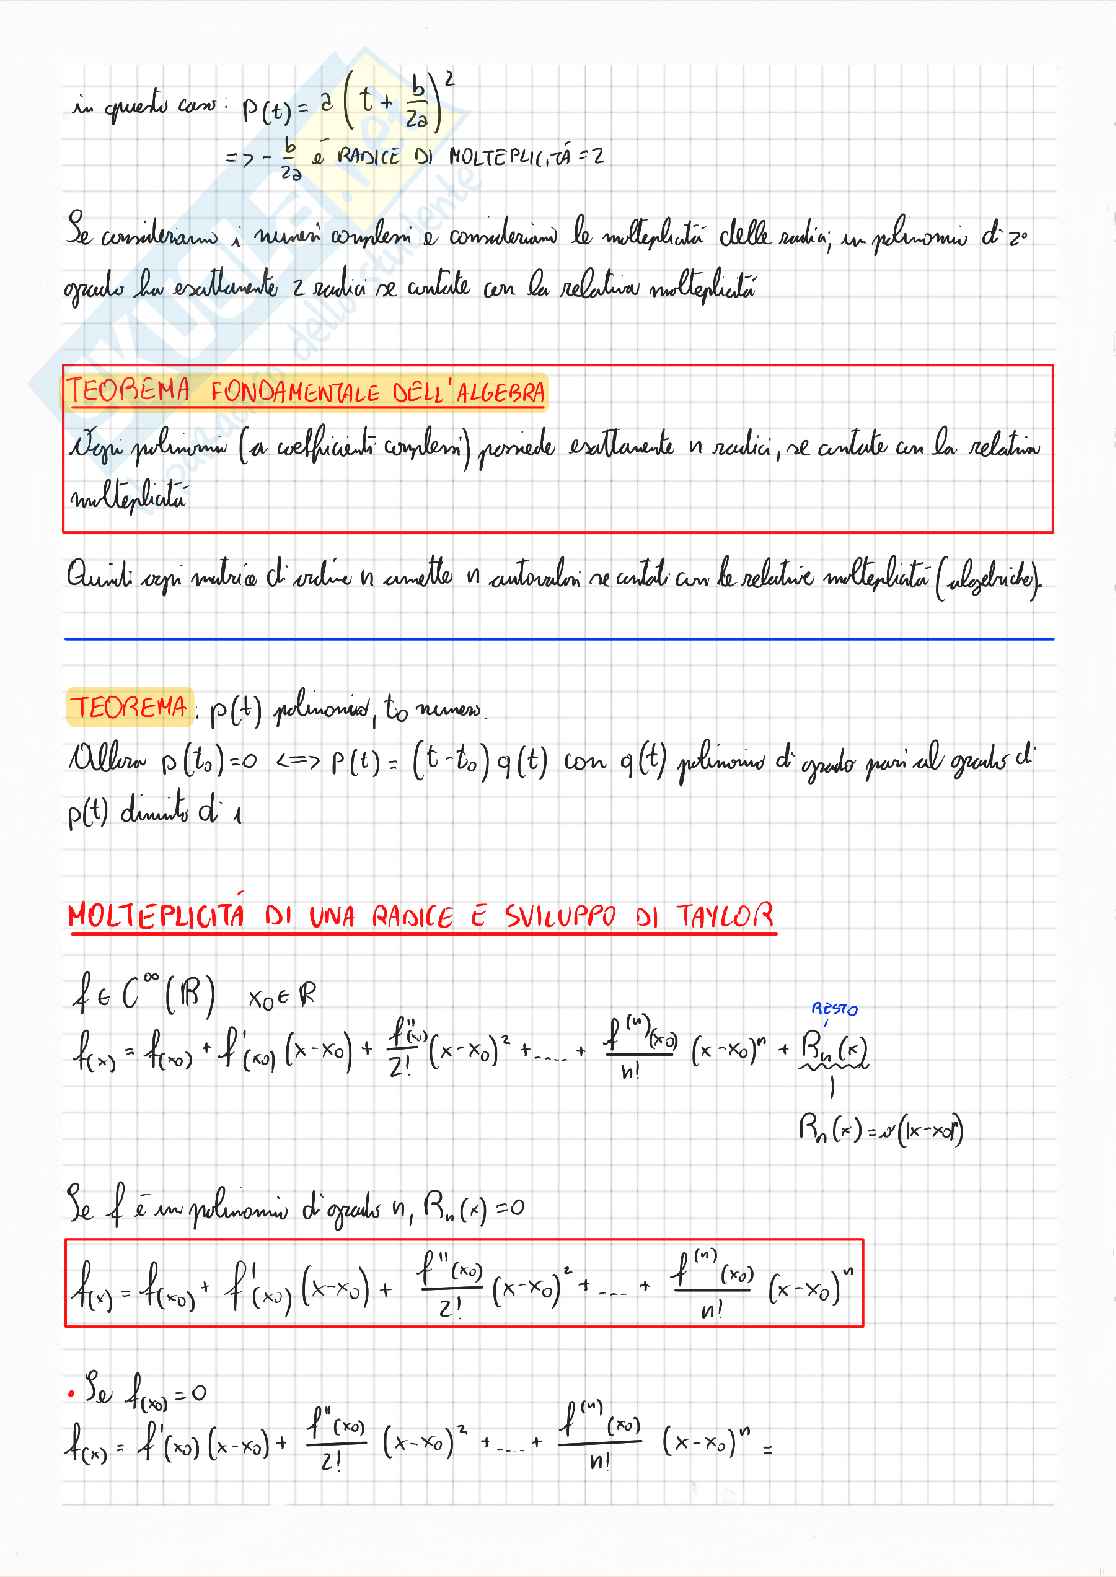 in questo caso: p(t) = a (t + b/2a)²
=> - b/2a é RADICE DI MOLTEPLICITÁ = 2
Se consideriamo i numeri complessi e consideriamo le molteplicitá delle radici, un polinomio di 2°
grado ha esattamente 2 radici se contate con la relativa molteplicitá
TEOREMA FONDAMENTALE DELL'ALGEBRA
Ogni polinomio (a coefficienti complessi) possiede esattamente n radici, se contate con la relativa
molteplicitá
Quindi ogni matrice di ordine n ammette n autovalori se contati con le relative molteplicitá (algebriche).
TEOREMA: p(t) polinomio, t₀ numero.
Allora p(t₀)=0 <=> p(t) = (t-t₀) q(t) con q(t) polinomio di grado pari al grado di
p(t) diminuito di 1
MOLTEPLICITÁ DI UNA RADICE E SVILUPPO DI TAYLOR
f ∈ C^∞(ℝ) x₀ ∈ ℝ
RESTO
f(x) = f(x₀) + f'(x₀) (x-x₀) + f''(x₀)/2! (x-x₀)² + .... + f^(n)(x₀)/n! (x-x₀)^n + Rn(x)
Rn(x) = o(|x-x₀|^n)
Se f é un polinomio di grado n, Rn(x) = 0
f(x) = f(x₀) + f'(x₀) (x-x₀) + f''(x₀)/2! (x-x₀)² + .... + f^(n)(x₀)/n! (x-x₀)^n
• Se f(x₀) = 0
f(x) = f'(x₀) (x-x₀) + f''(x₀)/2! (x-x₀)² + .... + f^(n)(x₀)/n! (x-x₀)^n =